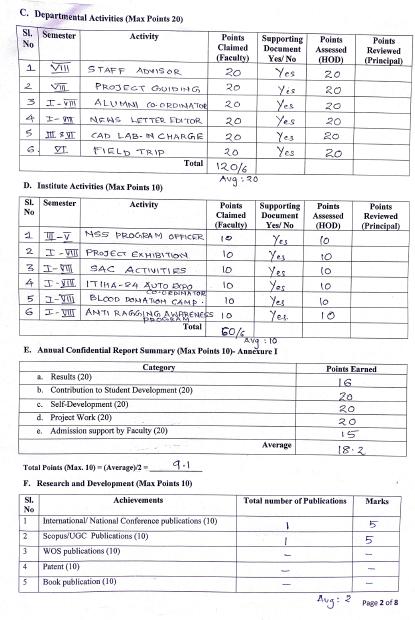 C. Departmental Activities (Max Points 20)
Sl. No Semester Activity Points Claimed (Faculty) Supporting Document Yes/ No Points Assessed (HOD) Points Reviewed (Principal)
1 VIII STAFF ADVISOR 20 Yes 20
2 VIII PROJECT GUIDING 20 Yes 20
3 I-VIII ALUMNI CO-ORDINATOR 20 Yes 20
4 I-VIII NEWS LETTER EDITOR 20 Yes 20
5 III & VI CAD LAB-IN CHARGE 20 Yes 20
6. VI FIELD TRIP 20 Yes 20
Total 120/6
Avg : 20
D. Institute Activities (Max Points 10)
Sl. No Semester Activity Points Claimed (Faculty) Supporting Document Yes/ No Points Assessed (HOD) Points Reviewed (Principal)
1 III-V NSS PROGRAM OFFICER 10 Yes 10
2 I-VIII PROJECT EXHIBITION 10 Yes 10
3 I-VIII SAC ACTIVITIES 10 Yes 10
4 I-VIII ITIHA-24 AUTO EXPO CO-ORDINATOR 10 Yes 10
5 I-VIII BLOOD DONATION CAMP. 10 Yes 10
6 I-VIII ANTI RAGGING AWARENESS PROGRAM 10 Yes. 10
Total 60/6
Avg : 10
E. Annual Confidential Report Summary (Max Points 10)- Annexure I
Category Points Earned
a. Results (20) 16
b. Contribution to Student Development (20) 20
c. Self-Development (20) 20
d. Project Work (20) 20
e. Admission support by Faculty (20) 15
Average 18.2
Total Points (Max. 10) = (Average)/2 = 9.1
F. Research and Development (Max Points 10)
Sl. No Achievements Total number of Publications Marks
1 International/ National Conference publications (10) 1 5
2 Scopus/UGC Publications (10) 1 5
3 WOS publications (10) – –
4 Patent (10) – –
5 Book publication (10) – –
Avg : 2 Page 2 of 8